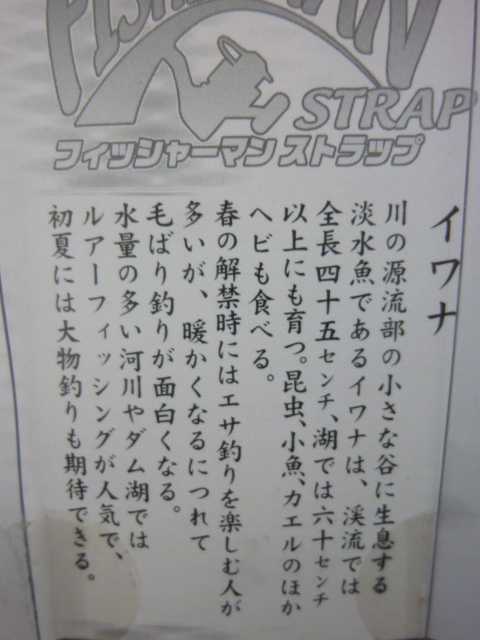 STRAP
フィッシャーマン ストラップ
イワナ
川の源流部の小さな谷に生息する
淡水魚であるイワナは、渓流では
全長四十五センチ、湖では六十センチ
以上にも育つ。昆虫、小魚、カエルのほか
ヘビも食べる。
春の解禁時にはエサ釣りを楽しむ人が
多いが、暖かくなるにつれて
毛ばり釣りが面白くなる。
水量の多い河川やダム湖では
ルアーフィッシングが人気で、
初夏には大物釣りも期待できる。